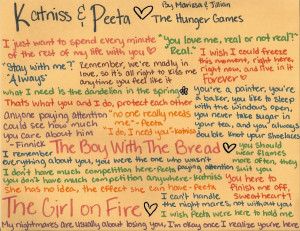 Katniss & Peeta
By Marissa & Jillian
The Hunger Games
I just want to spend every minute
of the rest of my life with you
"You love me, real or not real?"
Real."
"Stay with me"?
"Always"
Remember, we're madly in
love, so it's all right to kiss me
anytime you feel like it
I wish I could freeze
this moment, right here,
right now, and live in it
Forever
What I need is the dandelion in the spring
Thats what you and I do, protect each other
you're a painter, you're
a baker, you like to sleep
with the windows open,
you never take sugar in
your tea, and you always
double knot your shoelaces
anyone paying attention
could see how much
you care about him
-Finnick
"no one really needs
me" -Peeta
"I do, I need you" -Katniss
The Boy With The Bread
you should
wear flames
more often, they
suit you
I remember
everything about you, you were the one who wasn't
paying attention
I don't have much competition here -Peeta
you don't have much competition anywhere -Katniss
she has no idea, the effect she can have -Peeta
you here to
finish me off,
sweetheart?
The Girl on Fire
I can't handle
the nightmares without you
I wish Peeta were here to hold me
no it's not
My nightmares are usually about losing you, I'm okay once I realize you're here